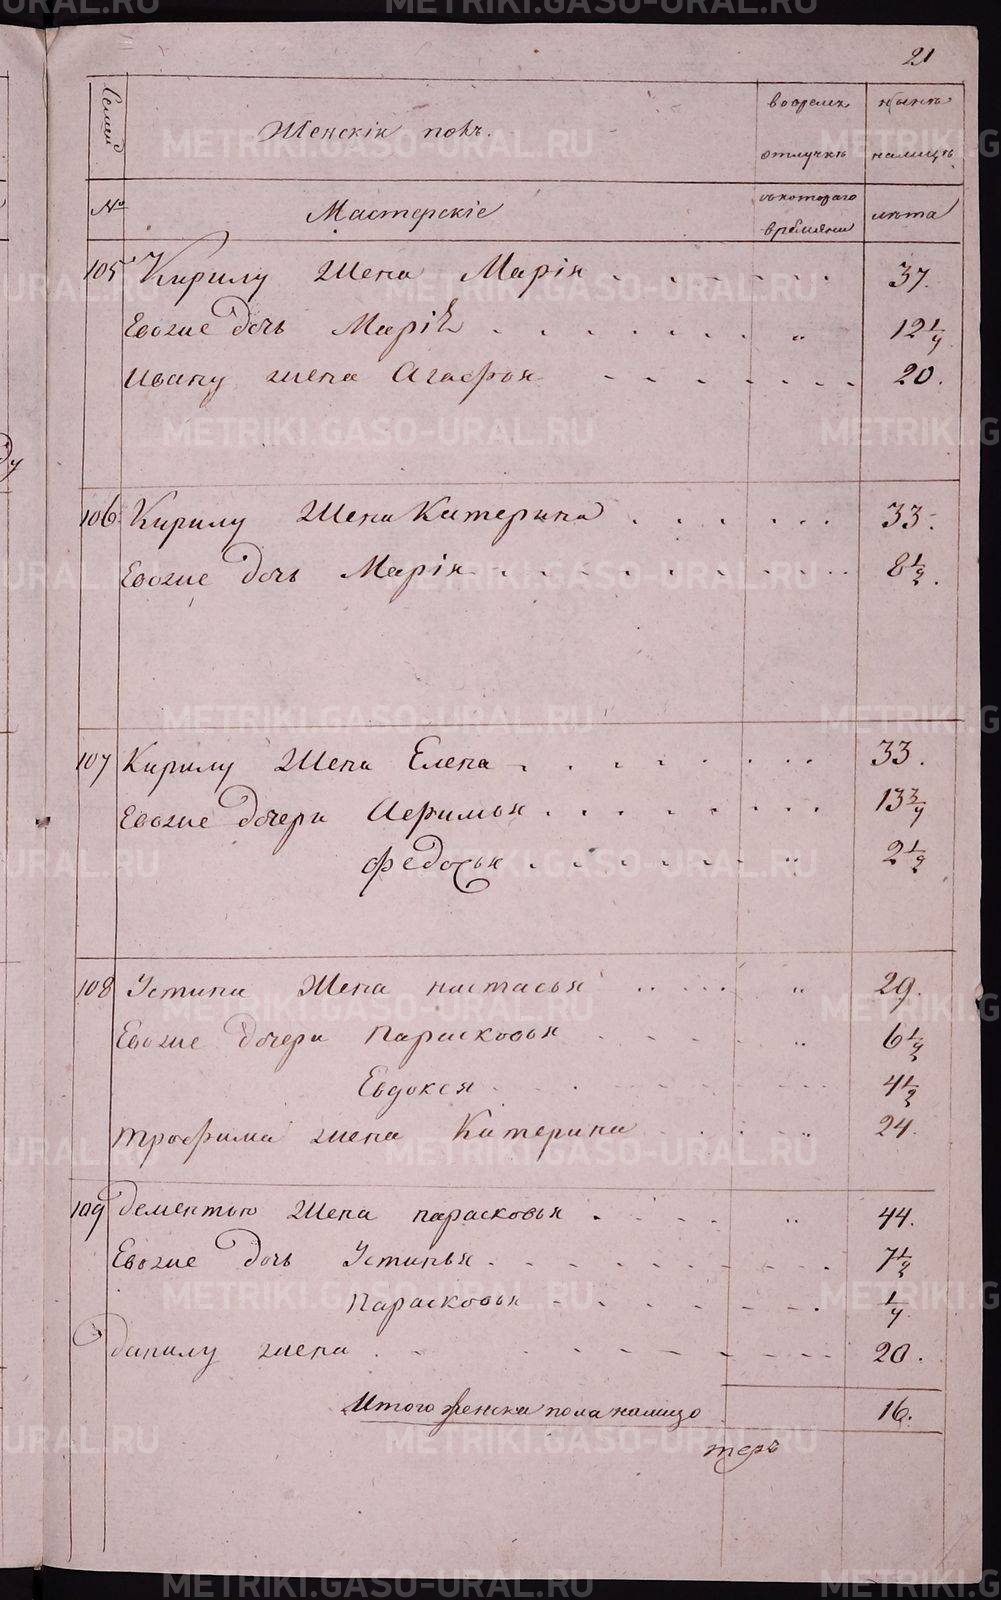 21
Семей
Женскій полъ.
во время
нынѣ
отлучкѣ
налицѣ
№
Мастерскіе
съ котораго
времяни
лѣта
105 Кирилу Жена Марія 37.
Евогие дочь Марія 12 1/4
Ивану жена Агафья 20.
106 Кирилу Жена Катерина 33.
Евогие дочь Марія 8 1/2.
107 Кирилу Жена Елена 33.
Евогие дочери 13 3/4
Федосья 2 1/2
108 Устина Жена настасья 29.
Евогие дочери Парасковья 6 1/2
Евдокея 4 1/2
трофима жена Катерина 24.
109 Дементью Жена парасковья 44.
Евогие дочь Устинья 7 1/2
Парасковья 1/4
Данилу жена 20.
Итого женска пола налицо 16.
METRIKI.GASO-URAL.RU